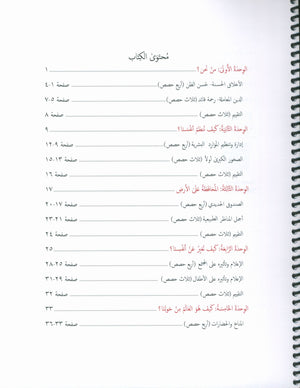 مُحتَوى الكِتاب
الوحدة الأولى: مَنْ نَحن؟ ١
الأخلاق الحسنة- حُسن الظن (أربع حصص) صفحة ١-٤
الدين المعاملة- رحمة (ثلاث حصص) صفحة ٥-٧
التقييم (ثلاث حصص) صفحة ٨
الوحدة الثانية: كيف ننظم أنفسنا؟ ٩
إدارة وتنظيم الموارد البشرية (أربع حصص) صفحة ٩-١٢
الصخور الكبرى أولاً (ثلاث حصص) صفحة ١٣-١٥
التقييم (ثلاث حصص) صفحة ١٦
الوحدة الثالثة: المحافظة على الأرض ١٧
الصندوق الحديدي (أربع حصص) صفحة ١٧-٢٠
أجمل المناظر الطبيعية (ثلاث حصص) صفحة ٢١-٢٣
التقييم (ثلاث حصص) صفحة ٢٤
الوحدة الرابعة: كيف نعبر عن أنفسنا؟ ٢٥
الإعلام وتأثيره على المجتمع (أربع حصص) صفحة ٢٥-٢٨
الإعلام وتأثيره على الأطفال (ثلاث حصص) صفحة ٢٩-٣١
التقييم (ثلاث حصص) صفحة ٣٢
الوحدة الخامسة: كيف هو العالم من حولنا؟ ٣٣
المناخ والحضارات (أربع حصص) صفحة ٣٣-٣٦